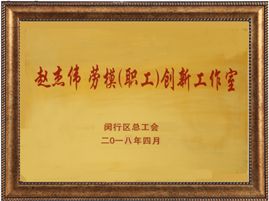 赵杰伟 劳模(职工)创新工作室
闵行区总工会
二〇一八年四月